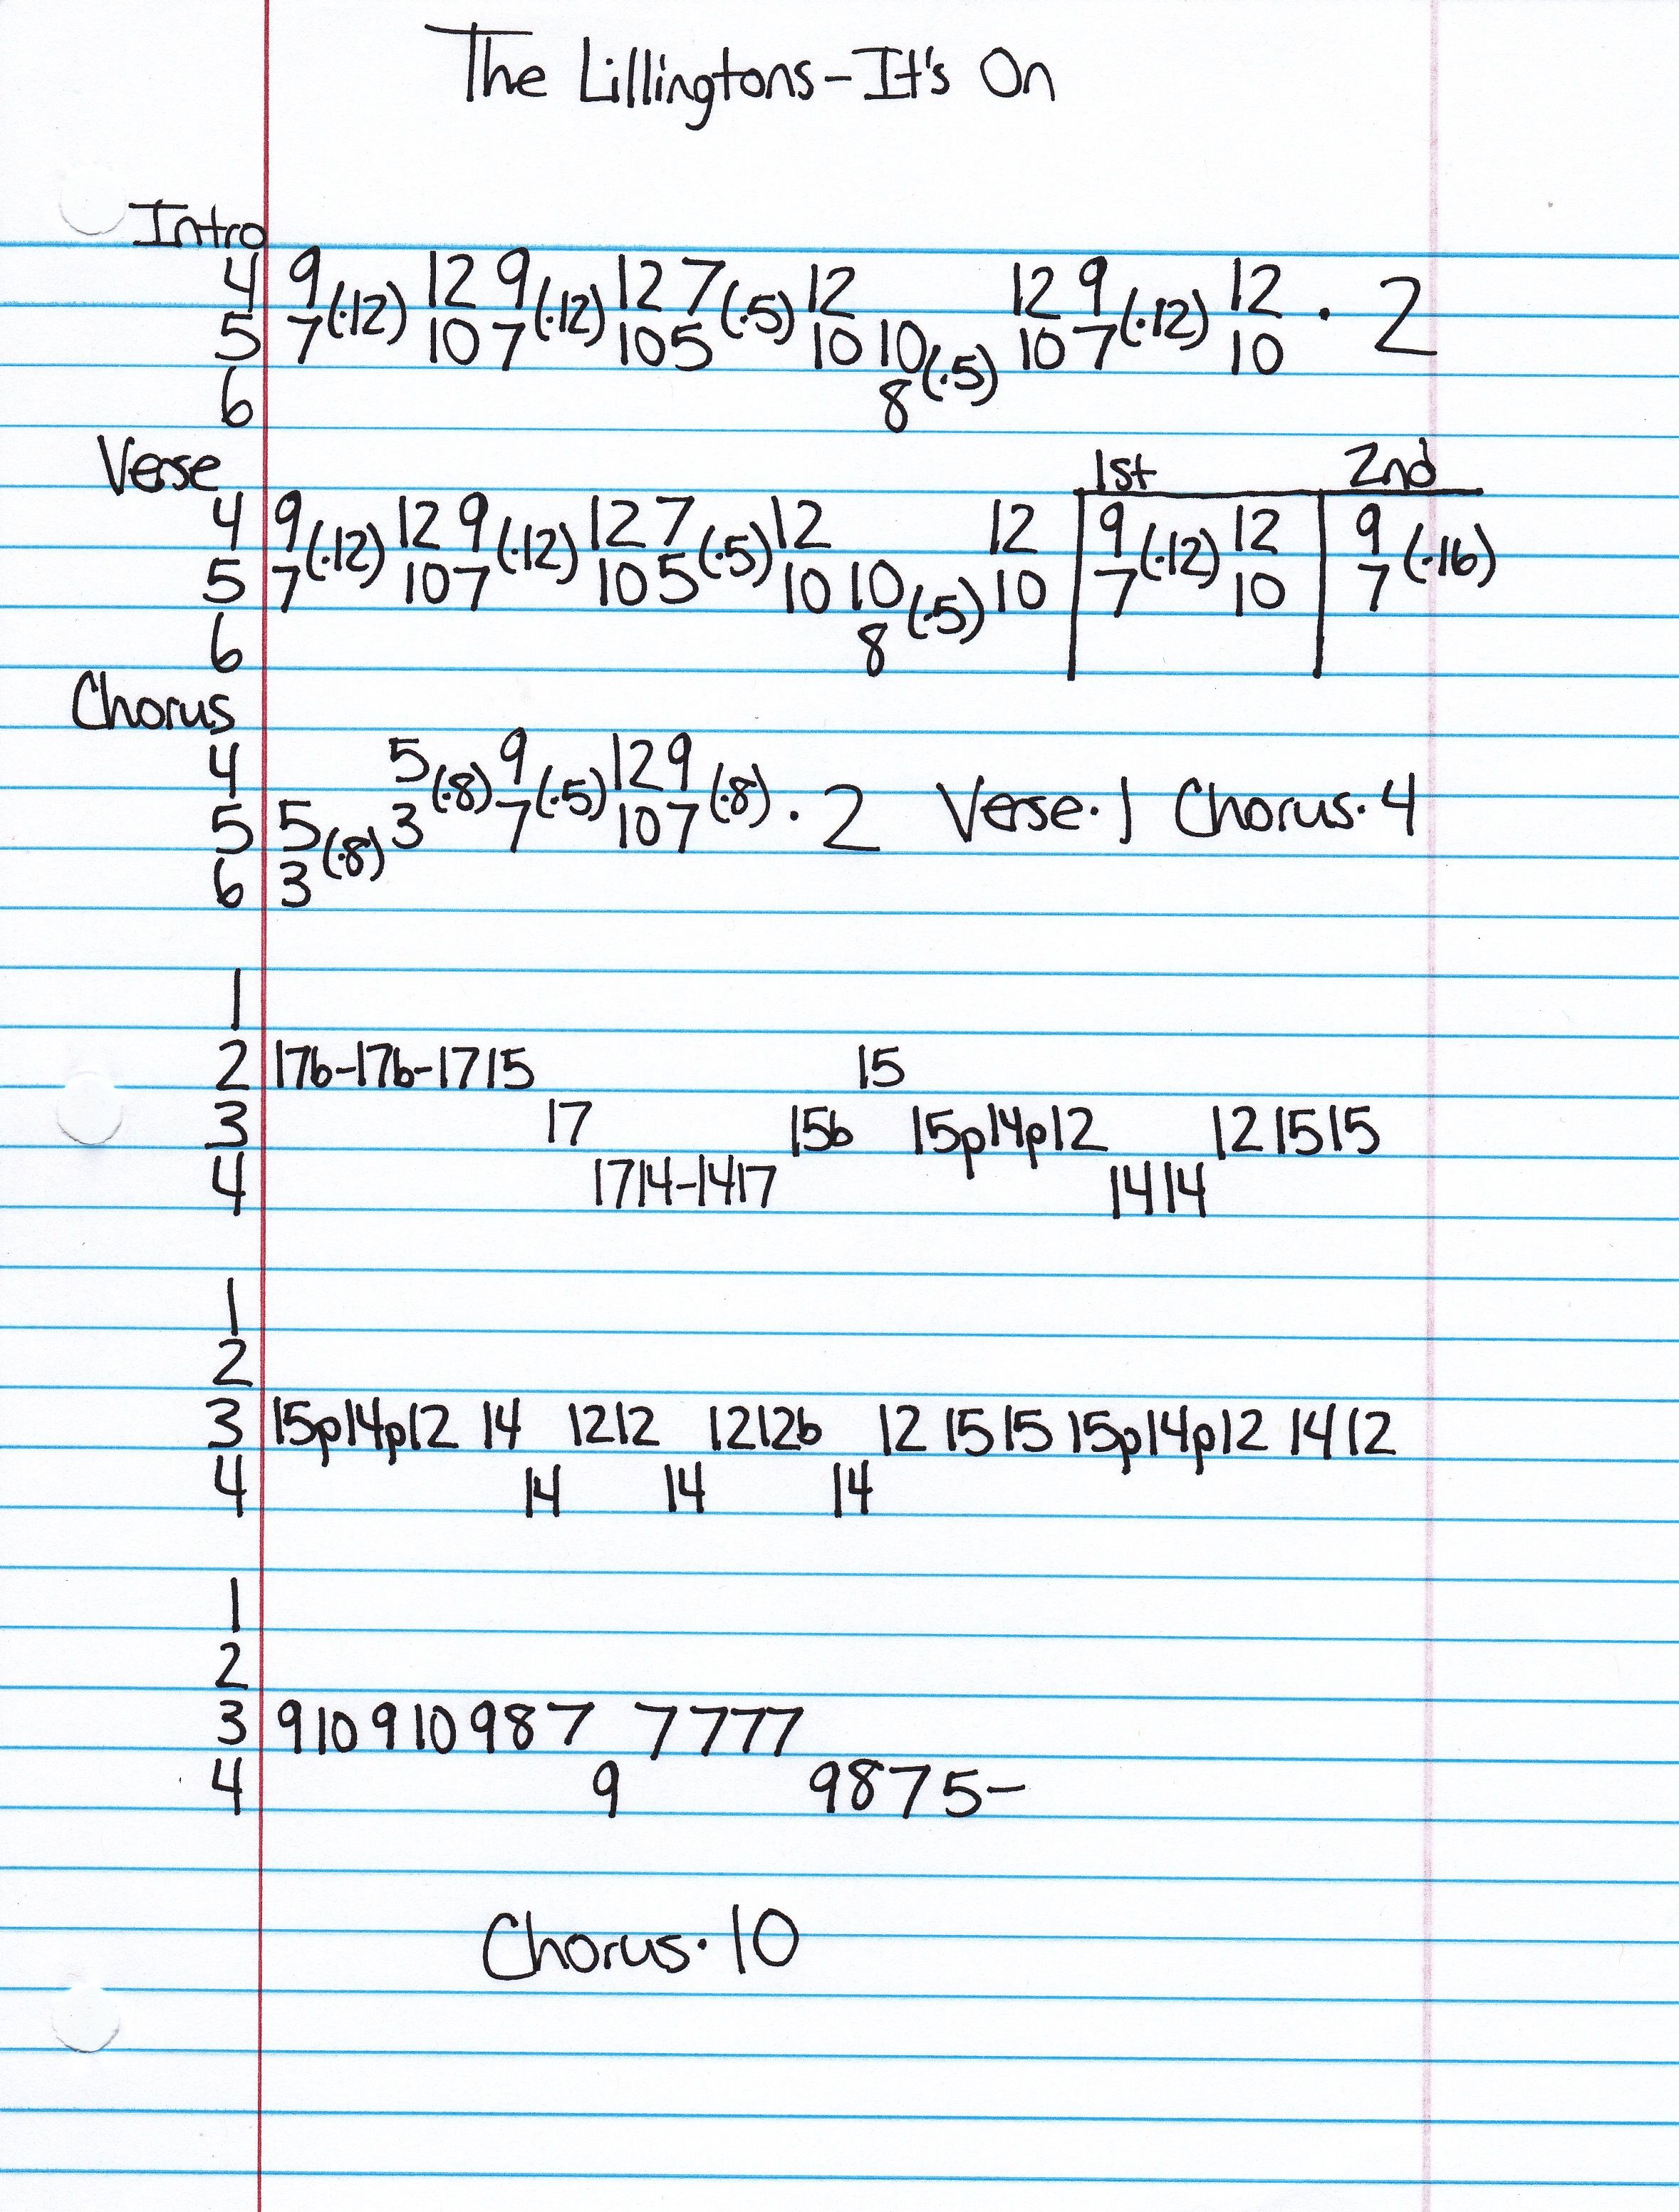 The Lillingtons-It's On
Intro
4 9(·12) 12 9(·12) 12 7(·5) 12 12 9(·12) 12 · 2
5 7 10 7 10 5 10 10(·5) 10 7 10
6 8
Verse 1st 2nd
4 9(·12) 12 9(·12) 12 7(·5) 12 12 9(·12) 12 9(·16)
5 7 10 7 10 5 10 10(·5) 10 7 10 7
6 8
Chorus
4 5(·8) 9(·5) 12 9(·8) · 2 Verse·1 Chorus·4
5 5(·8) 3 7 10 7
6 3
1
2 17b-17b-17 15 15
3 17 15b 15p14p12 12 15 15
4 17 14-14 17 14 14
1
2
3 15p14p12 14 12 12 12 12b 12 15 15 15p14p12 14 12
4 14 14 14
1
2
3 9 10 9 10 9 8 7 7 7 7 7
4 9 9 8 7 5-
Chorus·10